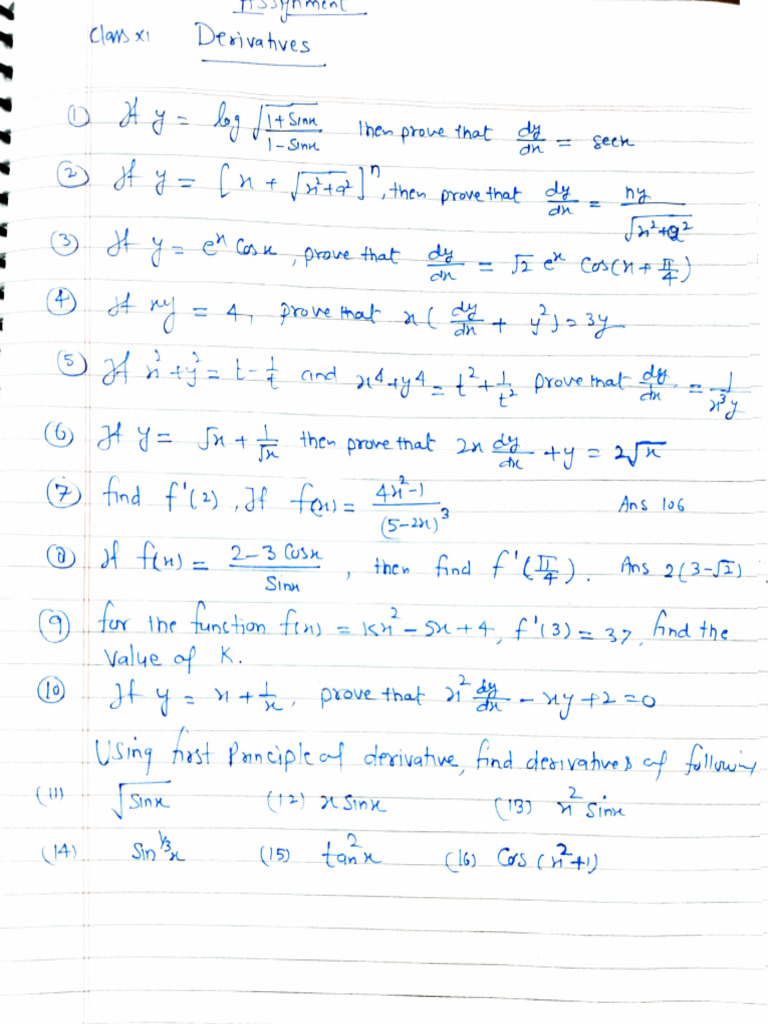 Assignment
Class XI Derivatives
(1) If y = log √(1+Sinx / 1-Sinx) then prove that dy/dx = secx
(2) If y = [x + √(x²+a²)]ⁿ, then prove that dy/dx = ny/√(x²+a²)
(3) If y = eˣ Cosx, prove that dy/dx = √2 eˣ cos(x + π/4)
(4) If xy = 4, prove that x(dy/dx + y²) = 3y
(5) If x²+y² = t - 1/t and x⁴+y⁴ = t²+1/t² prove that dy/dx = 1/x³y
(6) If y = √x + 1/√x then prove that 2x dy/dx + y = 2√x
(7) find f'(2), If f(x) = 4x²-1/(5-2x)³ Ans 106
(8) If f(x) = 2-3Cosx/Sinx, then find f'(π/4). Ans 2(3-√2)
(9) for the function f(x) = Kx² - 5x + 4, f'(3) = 37, find the
value of K.
(10) If y = x + 1/x, prove that x² dy/dx - xy + 2 = 0
Using first Principle of derivative, find derivatives of following
(11) √Sinx (12) x Sinx (13) x² Sinx
(14) Sin^1/3 x (15) tan²x (16) Cos (x²+1)